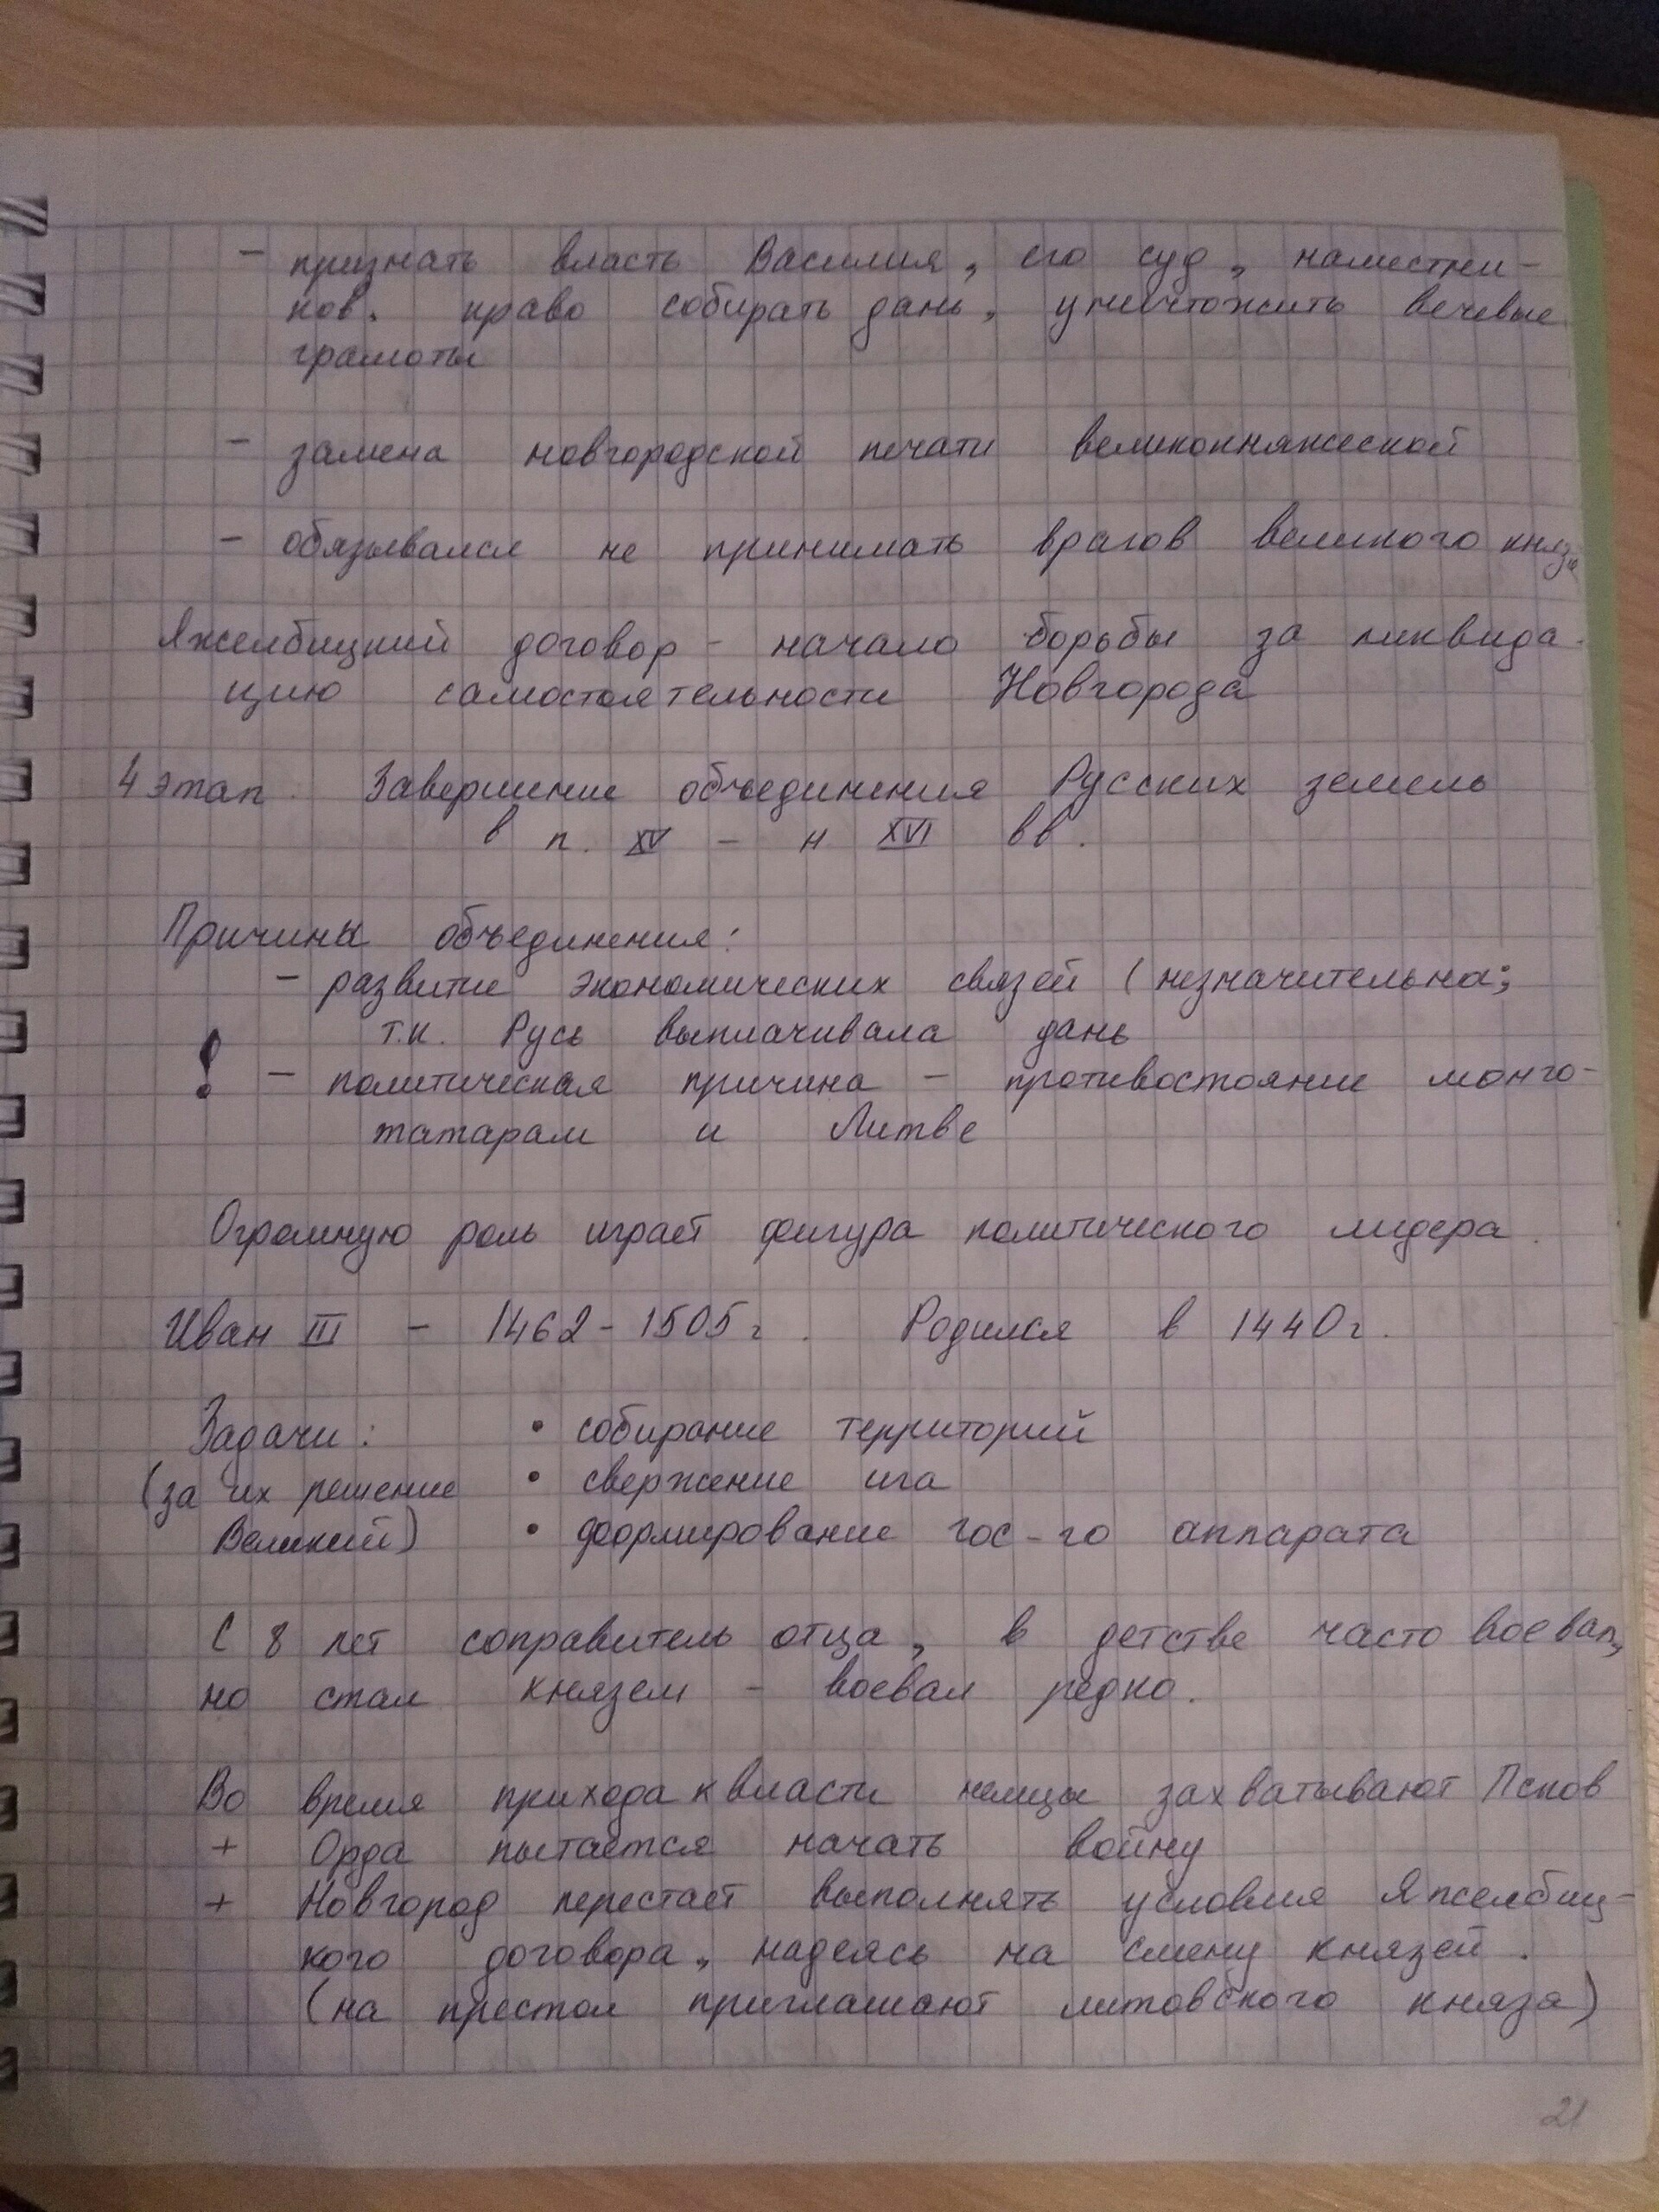 - признать власть Василия, его суд, наместни-
ков, право собирать дань, уничтожить вечевые
грамоты
- замена новгородской печати великокняжеской
- обязывался не принимать врагов великого князя
Яжелбицкий договор - начало борьбы за ликвида-
цию самостоятельности Новгорода
4 этап. Завершение объединения Русских земель
в п. XV - н. XVI вв.
Причины объединения:
- развитие экономических связей (незначительна;
т.к. Русь выплачивала дань
! - политическая причина - противостояние монго-
татарам и Литве
Огромную роль играет фигура политического лидера.
Иван III - 1462-1505г. Родился в 1440г.
Задачи: • собирание территорий
(за их решение • свержение ига
Великий) • формирование гос-го аппарата
С 8 лет соправитель отца, в детстве часто воевал,
но стал князем - воевал редко.
Во время прихода к власти немцы захватывают Псков
+ Орда пытается начать войну
+ Новгород перестает выполнять условия Яжелбиц-
кого договора, надеясь на смену князей.
(на престол приглашают литовского княза)
21